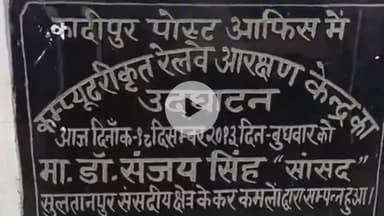 कादीपुर पोस्ट आफिस में
कम्प्यूटरीकृत रेलवे आरक्षण केन्द्र का
उदघाटन
आज दिनाँक-१८ दिसम्बर २०१३ दिन-बुधवार को
मा. डॉ. संजय सिंह "सांसद"
सुलतानपुर संसदीय क्षेत्र के कर कमलों द्वारा सम्पन्न हुआ।